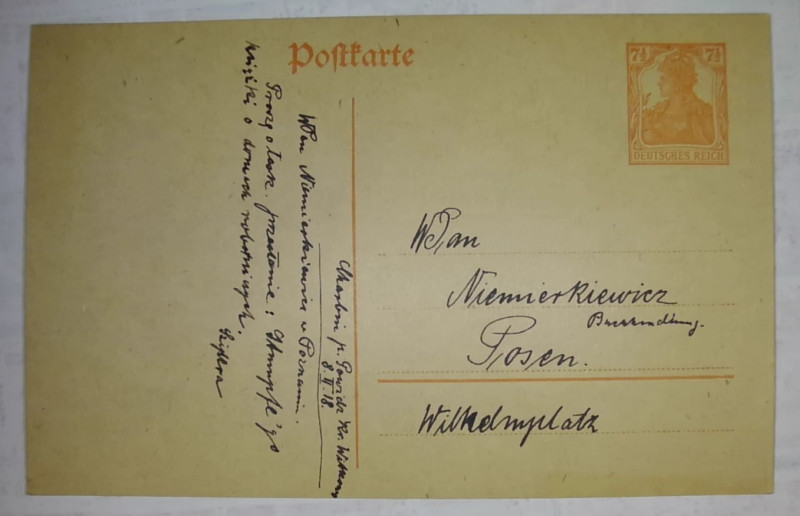 Postkarte
7½ 7½
DEUTSCHES REICH
WPan
Niemierkiewicz
Buchhandlung.
Posen.
Wilhelmplatz
p. Powidz Kr. Witkowo
8.II.18.
WPan Niemierkiewicz w Poznaniu.
Proszę o łask. przesłanie: Stumpfe'go
książki o domach robotniczych.